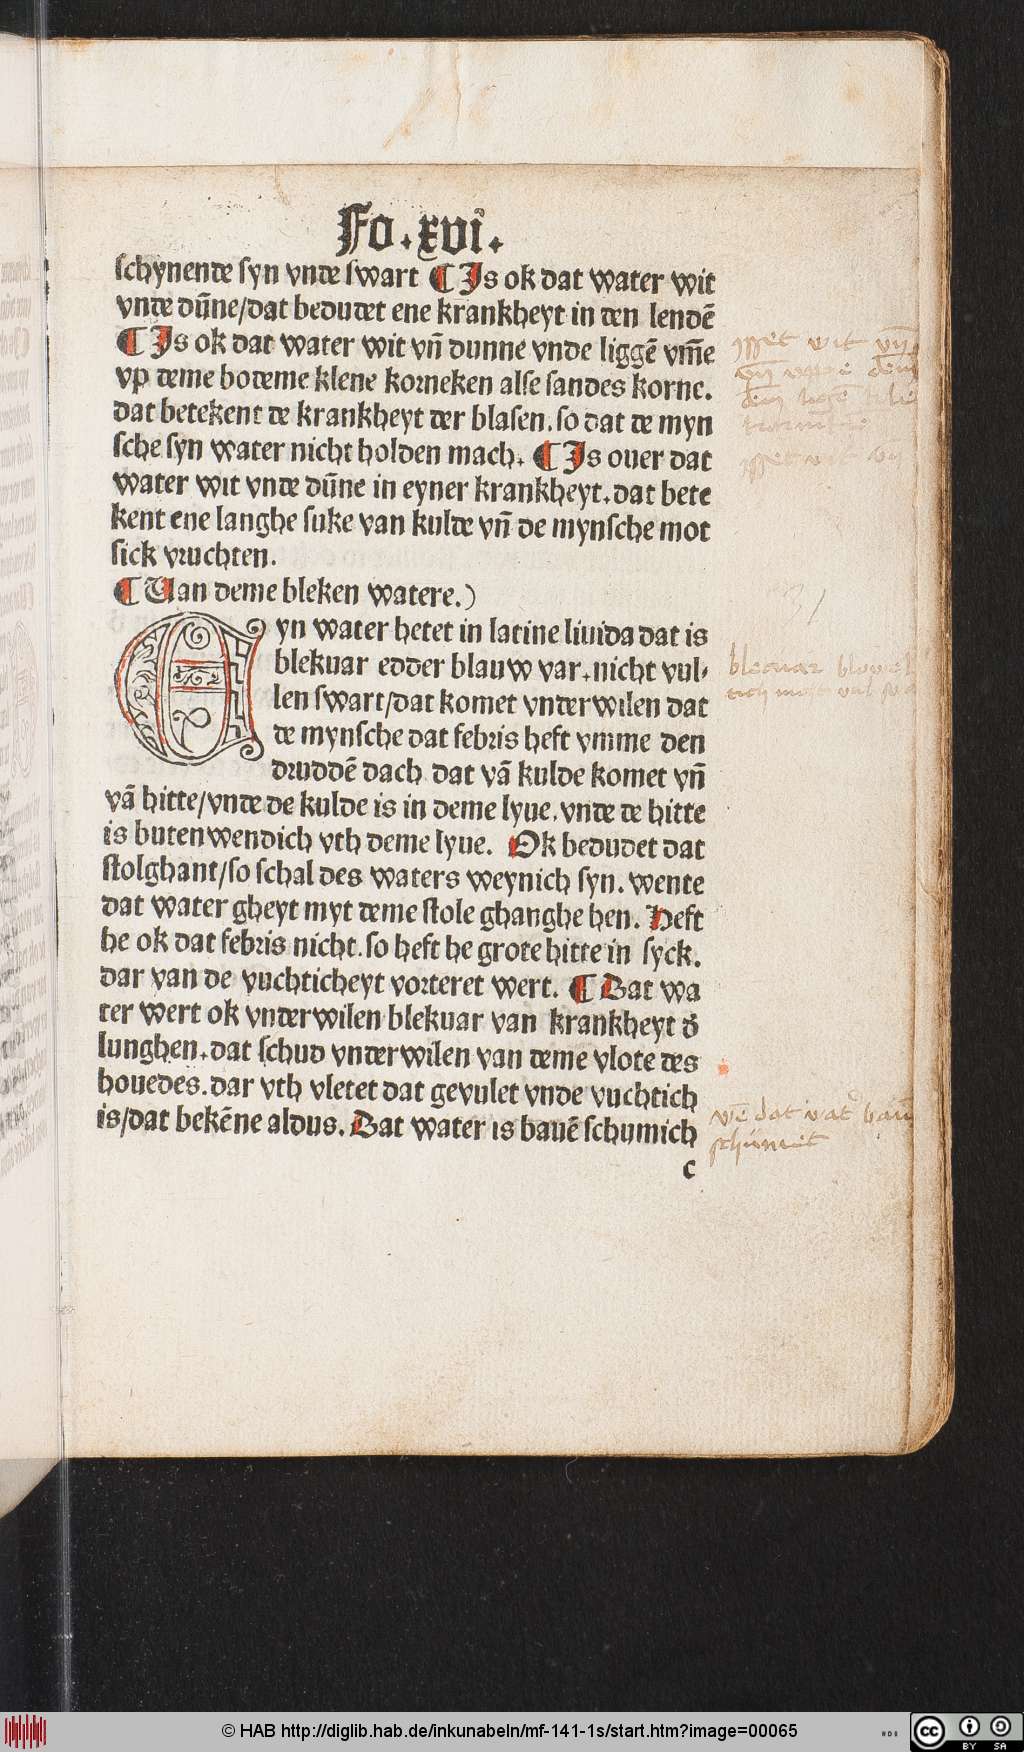 Fo.xvi.
schynende syn vnde swart ¶ Js ok dat water wit
vnde dūne/dat bedudet ene krankheyt in den lendē
¶ Js ok dat water wit vn̄ dunne vnde liggē vm̄e
vp deme bodeme klene korneken alse sandes korne.
dat betekent de krankheyt der blasen. so dat de myn
sche syn water nicht holden mach. ¶ Js ouer dat
water wit vnde dūne in eyner krankheyt. dat bete
kent ene langhe suke van kulde vn̄ de mynsche mot
sick vruchten.
¶ Uan deme bleken watere.)
Eyn water hetet in latine liuida dat is
blekuar edder blauw var. nicht vul-
len swart/dat komet vnderwilen dat
de mynsche dat febris heft vmme den
druddē dach dat vā kulde komet vn̄
vā hitte/vnde de kulde is in deme lyue. vnde de hitte
is butenwendich vth deme lyue. Ok bedudet dat
stolghant/so schal des waters weynich syn. wente
dat water gheyt myt deme stole ghanghe hen. Heft
he ok dat febris nicht. so heft he grote hitte in syck.
dar van de vuchticheyt vorteret wert. ¶ Dat wa
ter wert ok vnderwilen blekuar van krankheyt d'
lunghen. dat schud vnderwilen van deme vlote des
houedes. dar vth vletet dat gevulet vnde vuchtich
is/dat bekēne aldus. Dat water is bauē schumich
c
blecuar
vē dat vat
schumit
© HAB http://diglib.hab.de/inkunabeln/mf-141-1s/start.htm?image=00065
cc
BY SA